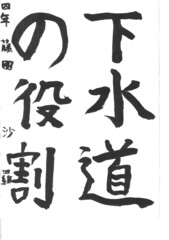 下水道
の役割
四年 藤田 沙羅